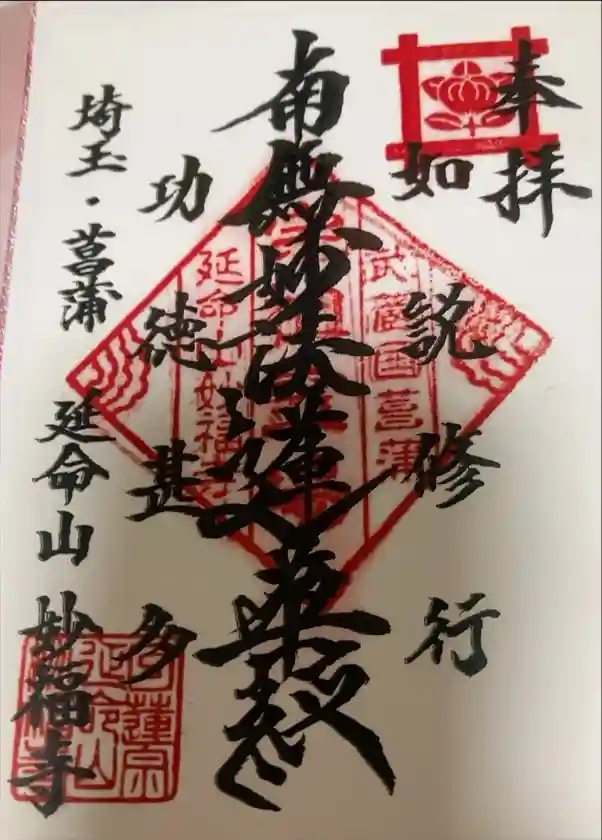 奉拝
如説修行
南無妙法蓮華経
功徳甚多
埼玉・菖蒲 延命山 妙福寺
武蔵国菖蒲
延命山妙福寺
日蓮宗
延命山